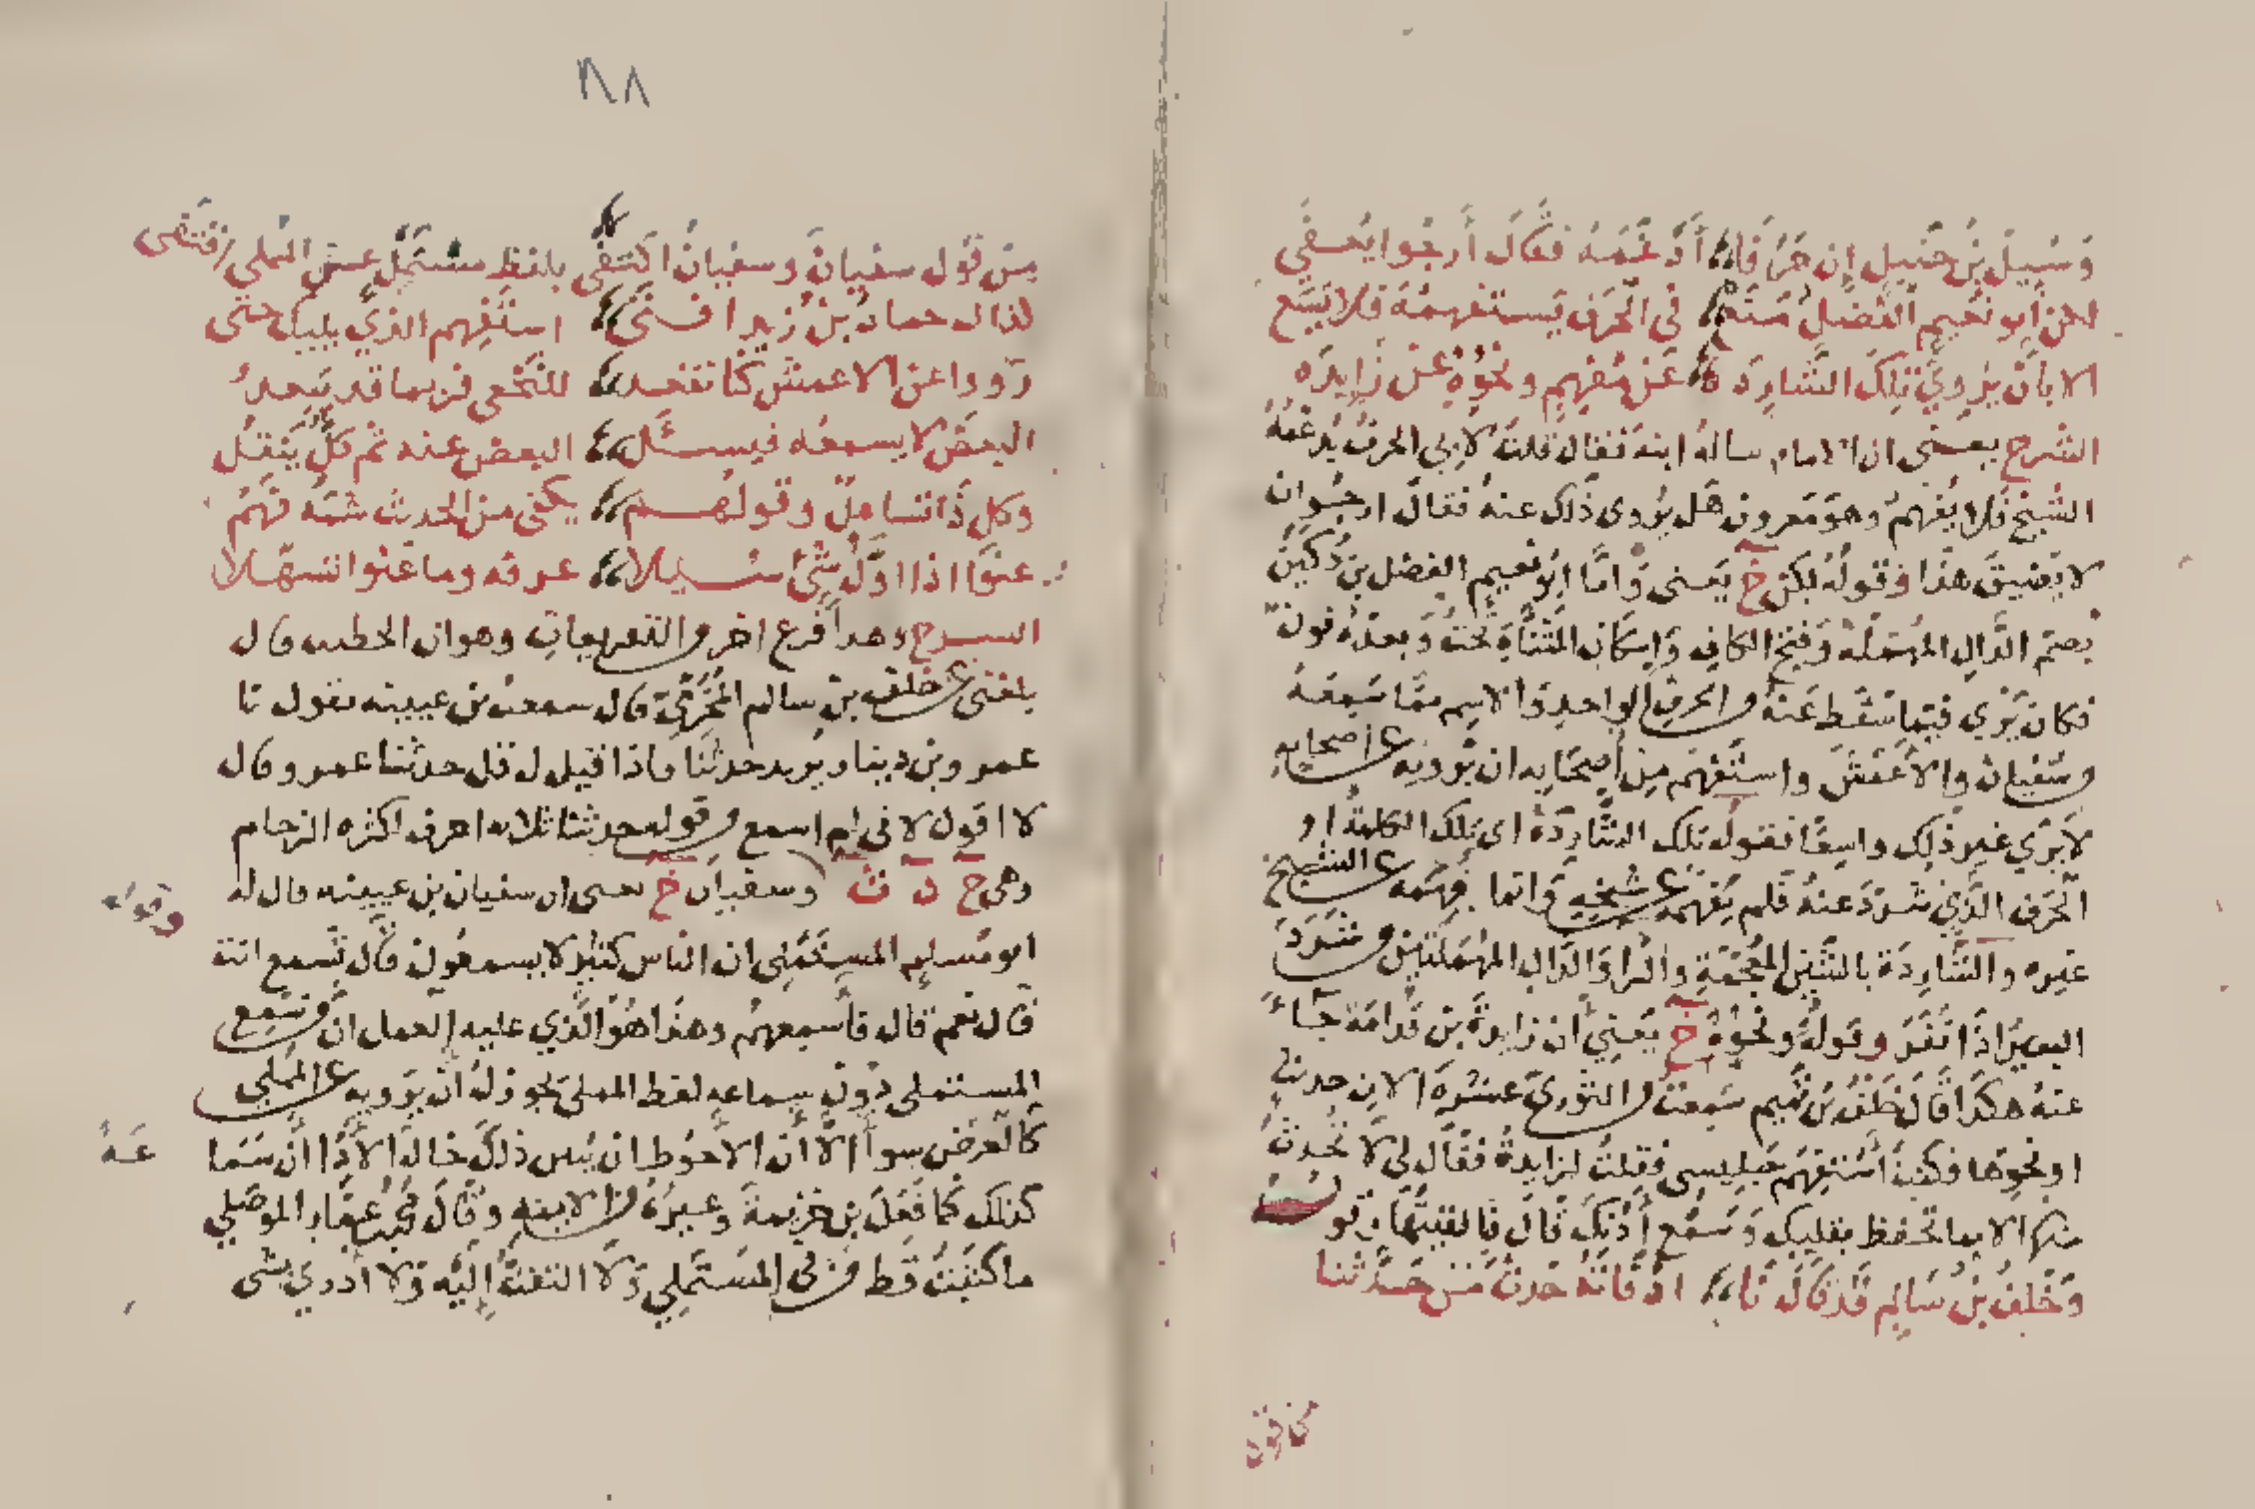 وَسُئِلَ بْنُ حَنْبَلٍ إِن حَرْفًا أَدْغَمَهُ فقَالَ أَرجُوا يُعفى
لكن أبو نُعيم الفَضلُ مَنَع في الحَرف يَستفهمُهُ فلا يَسَع
الا بأنْ يَرويَ تِلكَ الشَّارِدَه عَنْ مُفْهِمٍ ونحوُهُ عَنْ زَايدَه
الشرح يعني ان الامام ساله ابنه فقال قلت لابي الحرف يُدغمُهُ
الشيخ فلا يُفهمُ وهو مَعروف هَل يُروى ذلك عنه فقال ارجُوان
لا يضيقَ هذا وقوله لكن خ يَعنى وَامَّا ابُو نعيم الفضل بن دُكَيْن
بضم الدَّالِ المهملة وفتح الكافِ وَإسكان المثنَّاةِ تحت وَبعدَهُ نون
فكان يَرَى فيما سَقط عَنهُ في الحرف الواحد والاسم ممَّا سَمِعَهُ
من سُفيان والأعمَش واستَفهَم مِن أصحَابه ان يرويه عن اصحابه
لا يَرَي غير ذلك واسعًا فقوله تلك الشَّارِدَة اي تلك الكلمة او
الحَرف الَّذي شَردَ عنهُ فلم يَفهَمهُ عن شيخه وَانما فهَّمه عن الشيخ
غيره والشَّارِدَة بالشين المُعجَمَةِ والرا وَالدَّال المُهمَلتَين من شَرَدَ
البعيرُ اذَا نَفَرَ وقوله ونحوُهُ خ يَعني أن زايدةَ بن قُدامَة جَاءَ
عنهُ هكذا قالَ خَلَفُ بن تَميم سَمِعتُ من الثوري عشرةَ الاف حديث
او نحوها فكنتُ أستفهِمُ جَليسى فقلتُ لزايدةَ فقَال لي لا تُحدِّثْ
منها الا بما تحفظ بقلبك وَسمع أُذنكَ قال فالقيتُها وقو
وَخَلَفُ بْنُ سَالِمٍ قَدْ قَالَ نَا اذْ فَاتَهُ حَدث مَن حَدَّثنا
١٨
مِن قَول سفيانَ وسفيانُ اكتَفى بلفظ مستَملٍ عن المملي اقتفى
كذاك حماد بنُ زيد افتى استَفهم الذي يليك حتى
رَووا عن الاعمش كُنا نقعد للنَّخَعي فربما قد يَبعدُ
البعض لا يسمعُه فيسئَل البعض عنه ثم كلٌّ يَنقُل
وكل ذَا تساهلٌ وقولهم يكفي من الحديث شمُّه فَهُم
عنَوا اذا اوَّلُ شئ سئلا عرفه وما عَنوا تسهّلا
الشرح وهذا فرع اخر من التفريعات وهو ان الخطيب قال
بلغني عن خلف بن سالم المُخَرِّمي قال سمعت بن عيينه يقول نا
عمرو بن دينار يريد حدثنا فاذا قيل له قل حدثنا عمرو قال
لا اقول لاني لم اسمع من قوله حدثنا ثلاثه احرف لكثره الزحام
وهي ح د ث وسفيان خ يعني ان سفيان بن عيينه قال له
وقوله
ابو مُسلم المستَملي ان الناس كثير لا يسمعون قَال تسمع انت
قال نعم قال فأسمعهم وهذا هُوَ الَّذي عليه العمل ان من سَمِع
المستملى دون سماع لفظ المملى يجوز لهُ أن يرويه عن المملي
كالعَرض سواءً الا أن الاحوط ان يُبين ذلكَ حالة الأدَا أنَّ سَمَا
عَهُ
كذلك كما فَعَلَ بن خزيمة وغيرهُ من الايمه وقَال محمد بن عمَّار الموصلي
ما كَتبتُ قط من في المستملي وَلَا التفتُّ إليه وَلا أدري شى